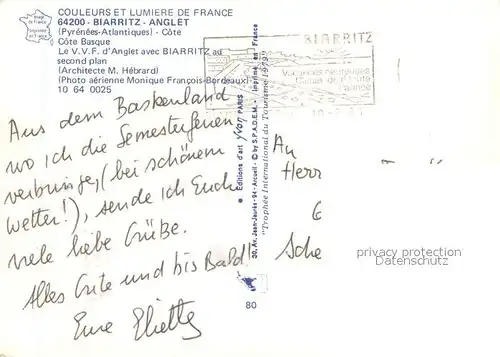 COULEURS ET LUMIERE DE FRANCE
64200 - BIARRITZ - ANGLET
(Pyrénées-Atlantiques) - Côte
Côte Basque
Le V.V.F. d'Anglet avec BIARRITZ au
second plan
(Architecte M. Hébrard)
(Photo aérienne Monique François-Bordeaux)
10 64 0025
Aus dem Baskenland
wo ich die Semesterferien
verbringe, (bei schönem
Wetter!), sende ich Euch
viele liebe Grüße.
Alles Gute und bis Bald!
Eure
Editions d'art yvon PARIS
30, Av. Jean-Jaurès - 94 - Arcueil - © by S.P.A.D.E.M. - Imprimé en France
"Trophée International du Tourisme 1979"
80
BIARRITZ
An
Herr
Sche
privacy protection
Datenschutz